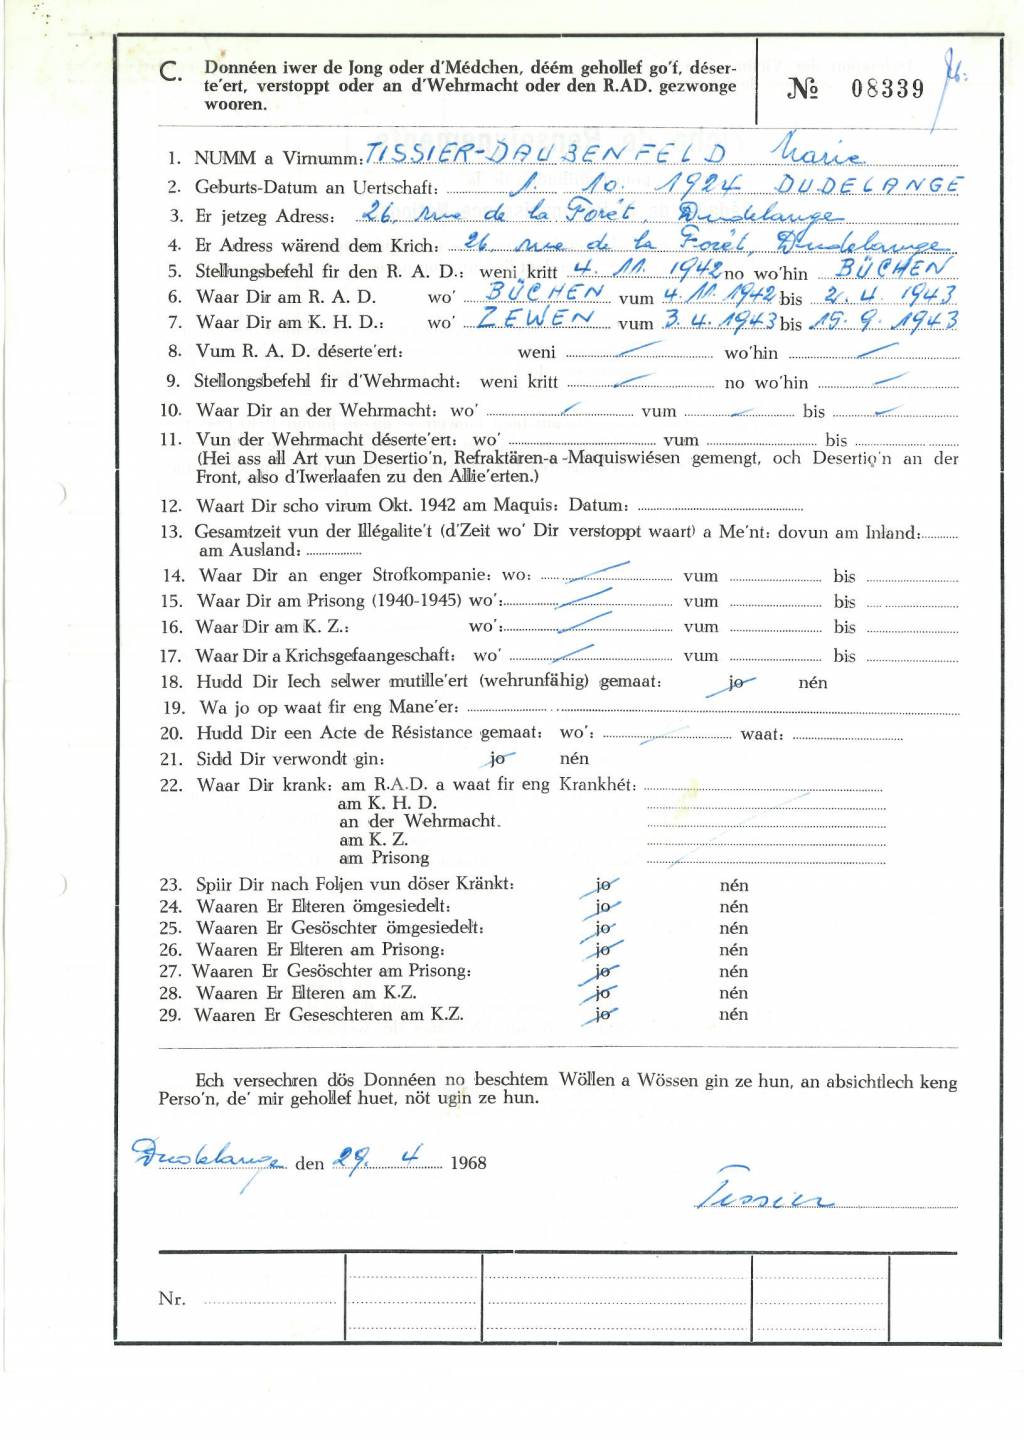 C. Donnéen iwer de Jong oder d'Médchen, déém gehollef go'f, déser-
te'ert, verstoppt oder an d'Wehrmacht oder den R.AD. gezwonge
wooren.
№ 08339
1. NUMM a Virnumm: TISSIER-DAUBENFELD Marie
2. Geburts-Datum an Uertschaft: 1. 10. 1924 DUDELANGE
3. Er jetzeg Adress: 26, rue de la Forêt, Dudelange
4. Er Adress wärend dem Krich: 26, rue de la Forêt, Dudelange
5. Stellungsbefehl fir den R. A. D.: weni kritt 4. 11. 1942 no wo'hin BÜCHEN
6. Waar Dir am R. A. D. wo' BÜCHEN vum 4. 11. 1942 bis 2. 4. 1943
7. Waar Dir am K. H. D.: wo' ZEWEN vum 3. 4. 1943 bis 15. 9. 1943
8. Vum R. A. D. déserte'ert: weni wo'hin
9. Stellongsbefehl fir d'Wehrmacht: weni kritt no wo'hin
10. Waar Dir an der Wehrmacht: wo' vum bis
11. Vun der Wehrmacht déserte'ert: wo' vum bis
(Hei ass all Art vun Desertio'n, Refraktären-a -Maquiswiésen gemengt, och Desertio'n an der
Front, also d'Iwerlaafen zu den Allie'erten.)
12. Waart Dir scho virum Okt. 1942 am Maquis: Datum:
13. Gesamtzeit vun der Illégalite't (d'Zeit wo' Dir verstoppt waart) a Me'nt: dovun am Inland:
am Ausland:
14. Waar Dir an enger Strofkompanie: wo: vum bis
15. Waar Dir am Prisong (1940-1945) wo': vum bis
16. Waar Dir am K. Z.: wo': vum bis
17. Waar Dir a Krichsgefaangeschaft: wo' vum bis
18. Hudd Dir Iech selwer mutille'ert (wehrunfähig) gemaat: jo nén
19. Wa jo op waat fir eng Mane'er:
20. Hudd Dir een Acte de Résistance gemaat: wo': waat:
21. Sidd Dir verwondt gin: jo nén
22. Waar Dir krank: am R.A.D. a waat fir eng Krankhét:
am K. H. D.
an der Wehrmacht.
am K. Z.
am Prisong
23. Spiir Dir nach Foljen vun döser Kränkt: jo nén
24. Waaren Er Elteren ömgesiedelt: jo nén
25. Waaren Er Gesöschter ömgesiedelt: jo nén
26. Waaren Er Elteren am Prisong: jo nén
27. Waaren Er Gesöschter am Prisong: jo nén
28. Waaren Er Elteren am K.Z. jo nén
29. Waaren Er Geseschteren am K.Z. jo nén
Ech versechren dös Donnéen no beschtem Wöllen a Wössen gin ze hun, an absichtlech keng
Perso'n, de' mir gehollef huet, nöt ugin ze hun.
Dudelange den 29. 4 1968
Tissier
Nr.